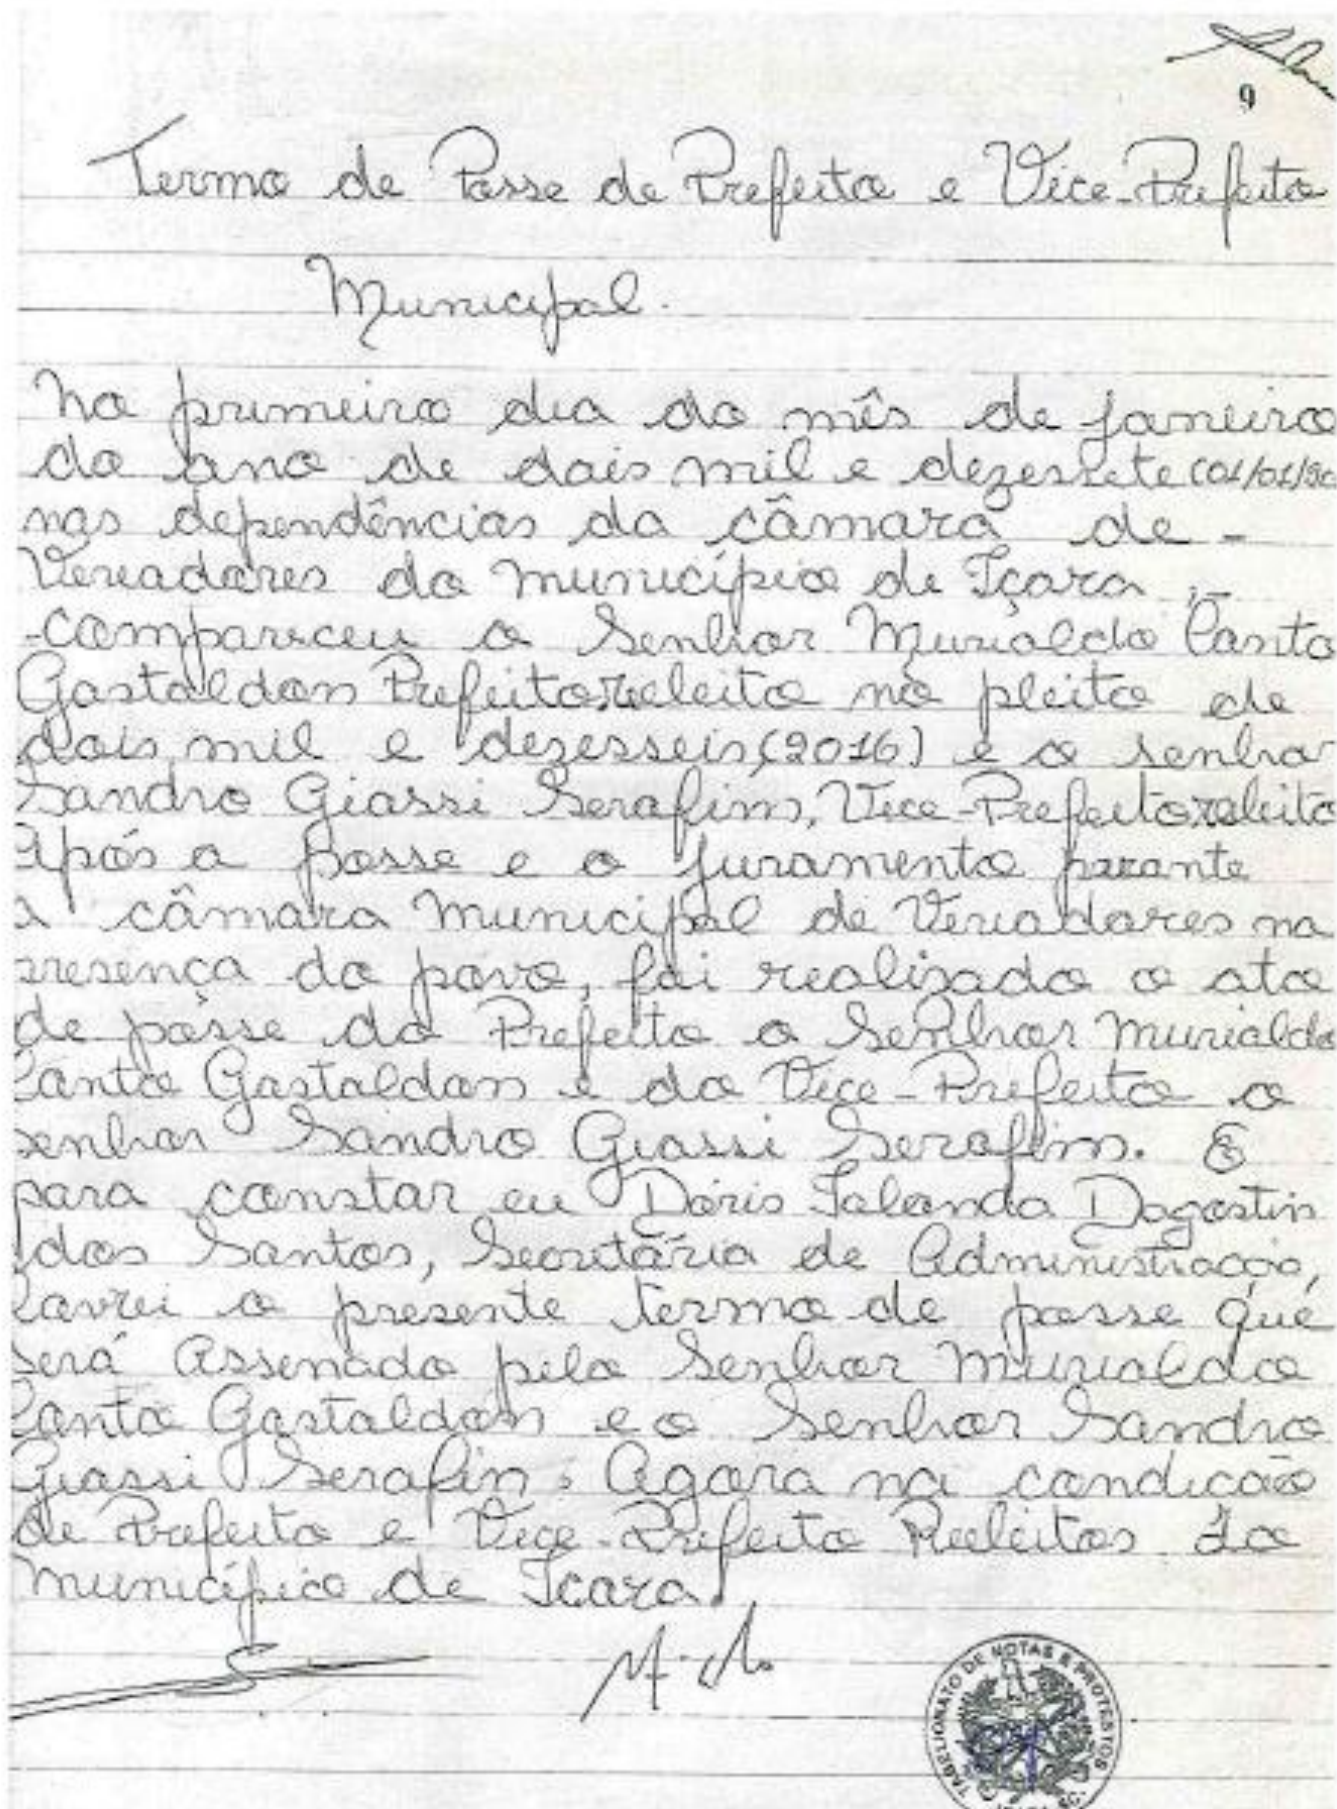 9
Termo de Posse de Prefeito e Vice-Prefeito
Municipal.
No primeiro dia do mês de janeiro
do ano de dois mil e dezessete (01/01/20
nas dependências da câmara de -
Vereadores do município de Içara
-compareceu o Senhor Murialdo Canto
Gastaldon Prefeito reeleito no pleito de
dois mil e dezesseis (2016) e o senhor
Sandro Giassi Serafim, Vice-Prefeito reeleito
Após a posse e o juramento perante
a câmara municipal de Vereadores na
presença do povo, foi realizado o ato
de posse do Prefeito o Senhor Murialdo
Canto Gastaldon e do Vice-Prefeito o
senhor Sandro Giassi Serafim. E
para constar eu Dóris Dagostin
dos Santos, Secretária de Administração,
lavrei o presente termo de posse que
será Assinado pelo Senhor Murialdo
Canto Gastaldon e o Senhor Sandro
Giassi Serafin. Agora na condição
de Prefeito e Vice-Prefeito Reeleitos do
município de Içara.
TABELIONATO DE NOTAS E PROTESTOS